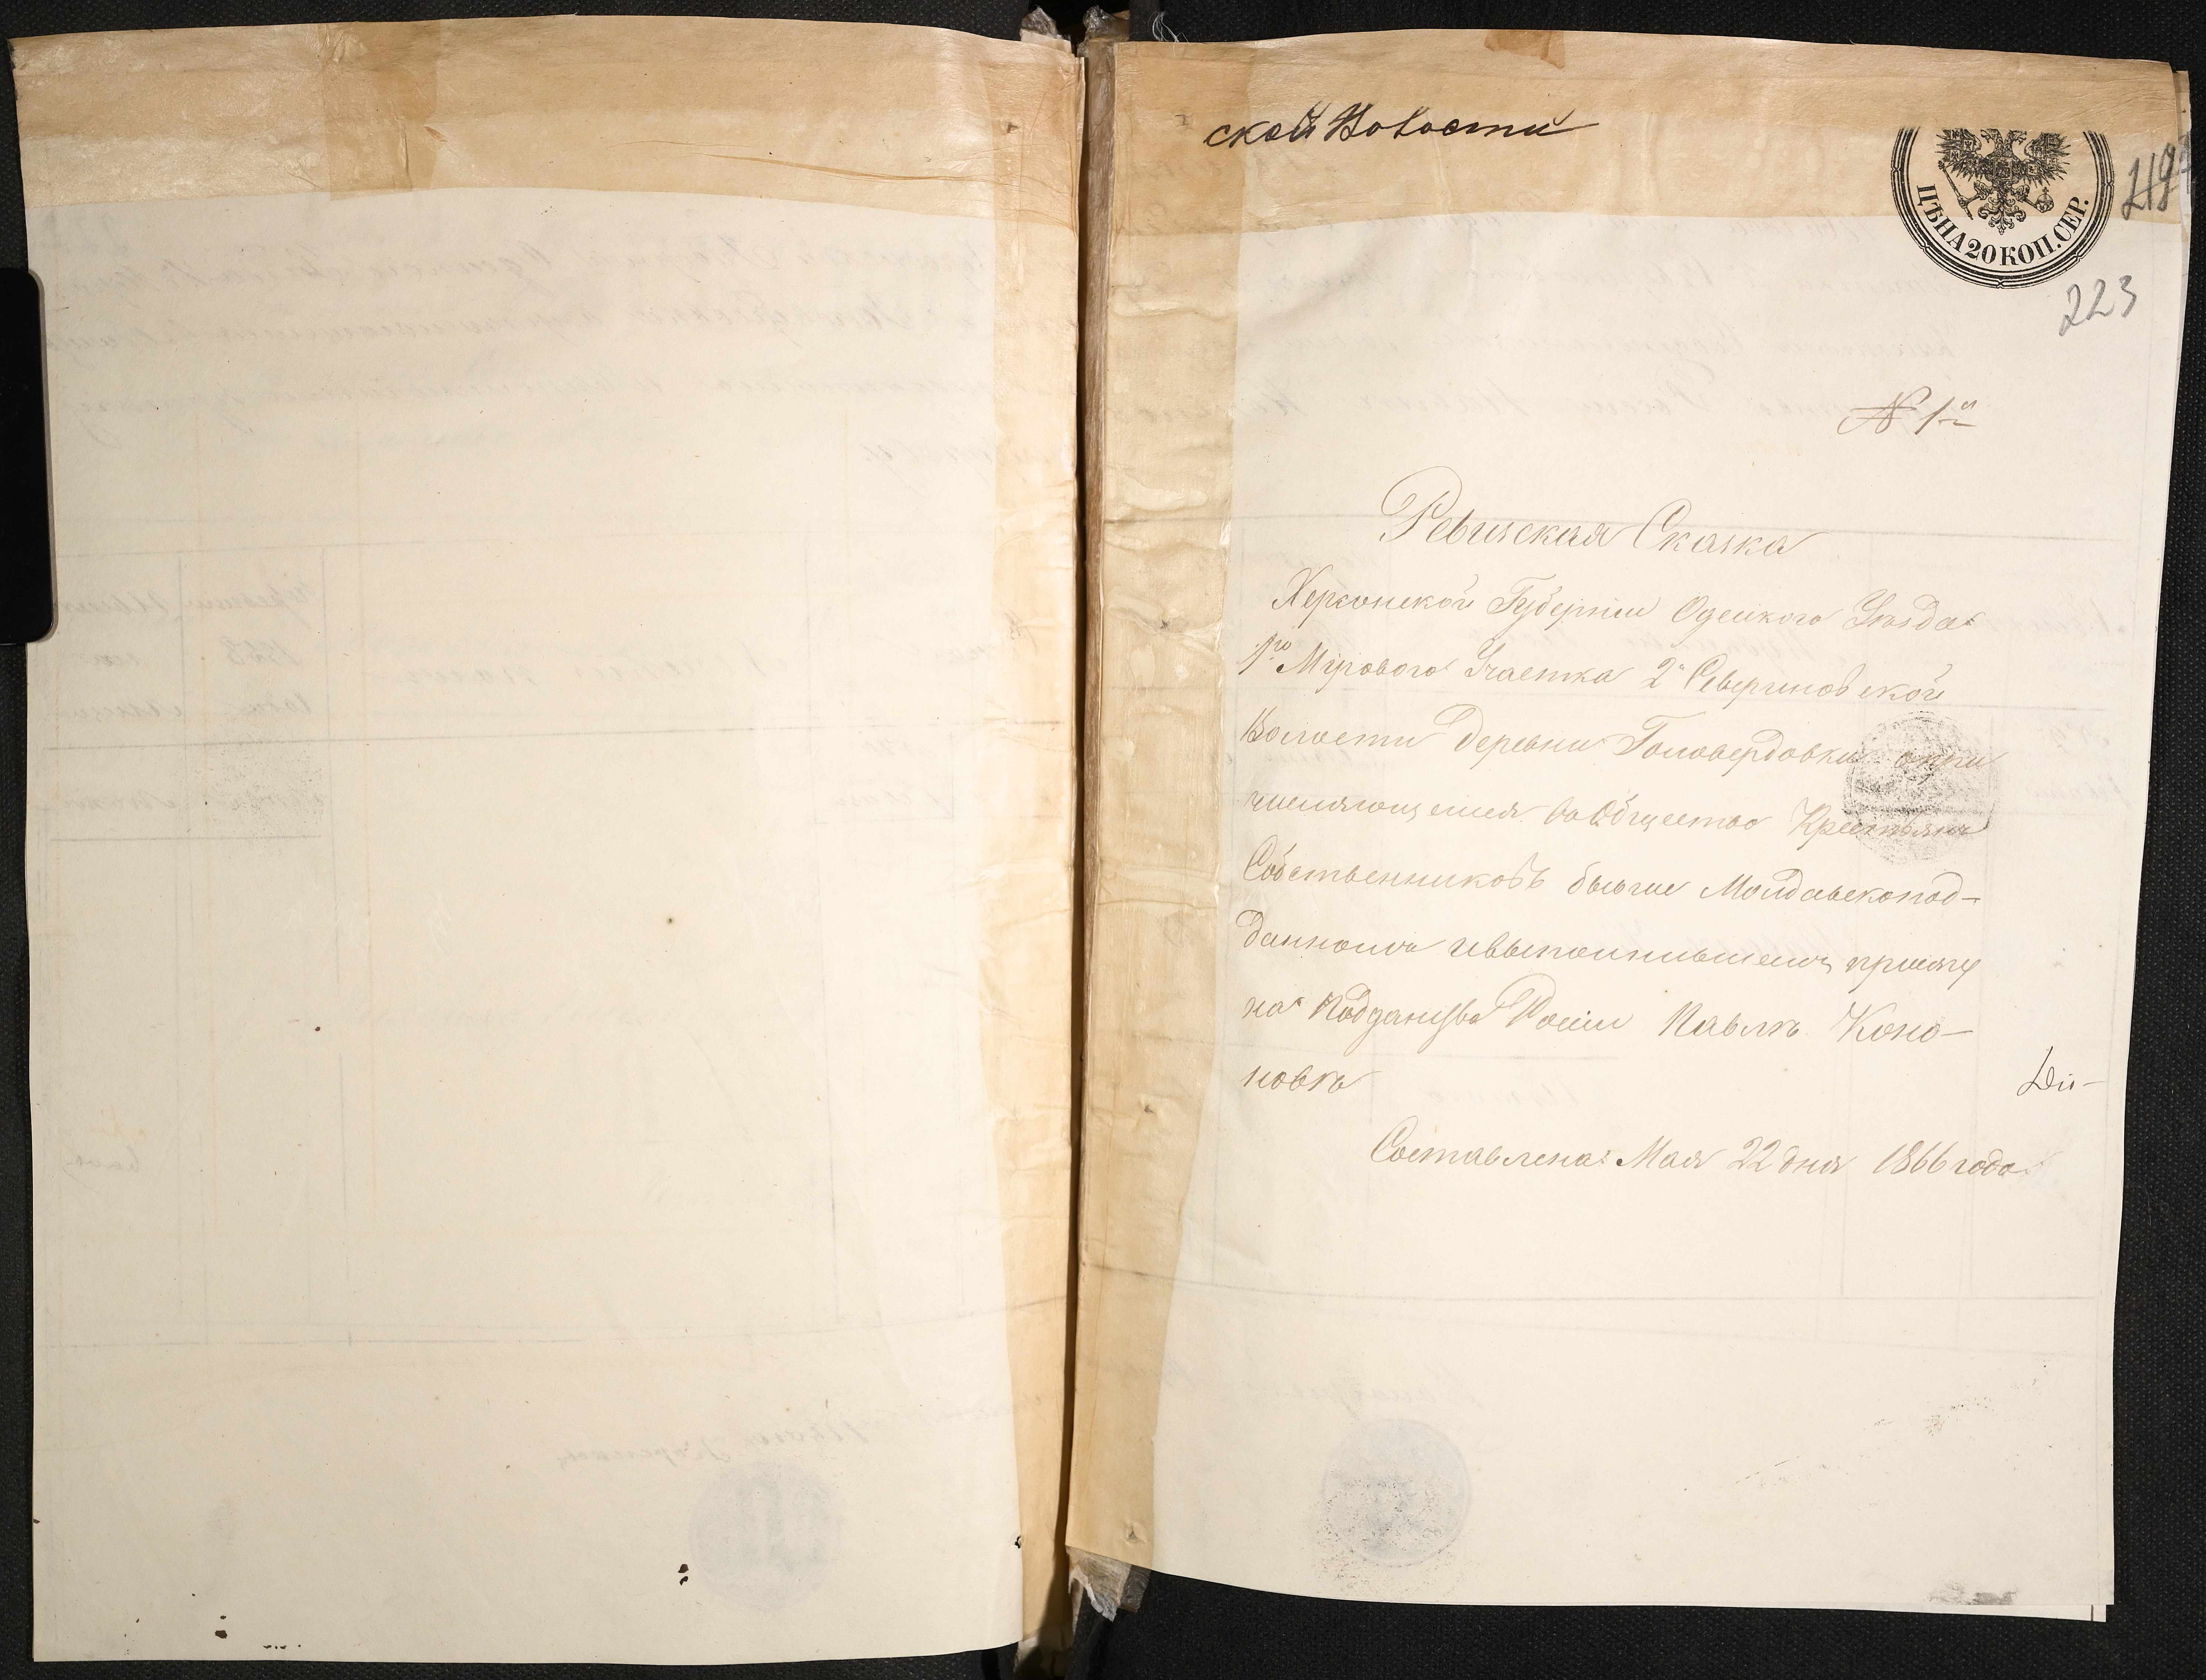 ской Волости
ЦѢНА 20 КОП. СЕР.
223
№ 1й
Ревизская Сказка
Херсонской Губерніи Одескаго Уѣзда
1го Мироваго Участка 2й Севериновской
Волости Деревни Головердовки опри
числяющемся въ Общество Крестьянъ
Собственниковъ бывше Молдавскопод-
данномъ и выполнившемъ присягу
на подданство Росіи Павлѣ Коно-
новѣ
Составлена Мая 22 дня 1866 года